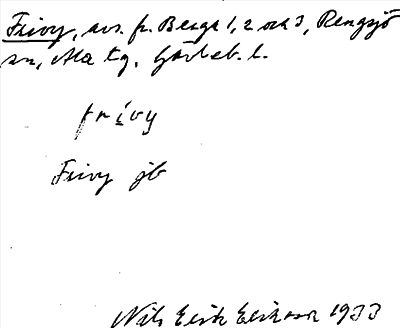 Frivy, avs. fr. Berga 1, 2 och 3, Rengsjö
sn, Ala tg, Gävleb. l.
frívy
Frivy jb
Nils Erik Eriksson 1933